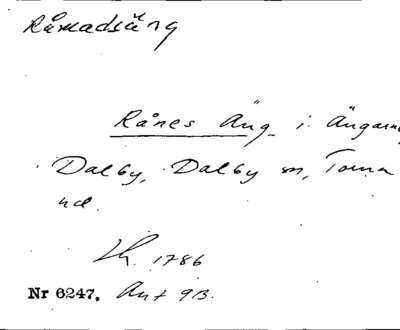 Råmadsäng
Rånes Äng i Ängarne
Dalby, Dalby sn, Torna
hd.
Lh. 1786
Nr 6247. Ant 93.